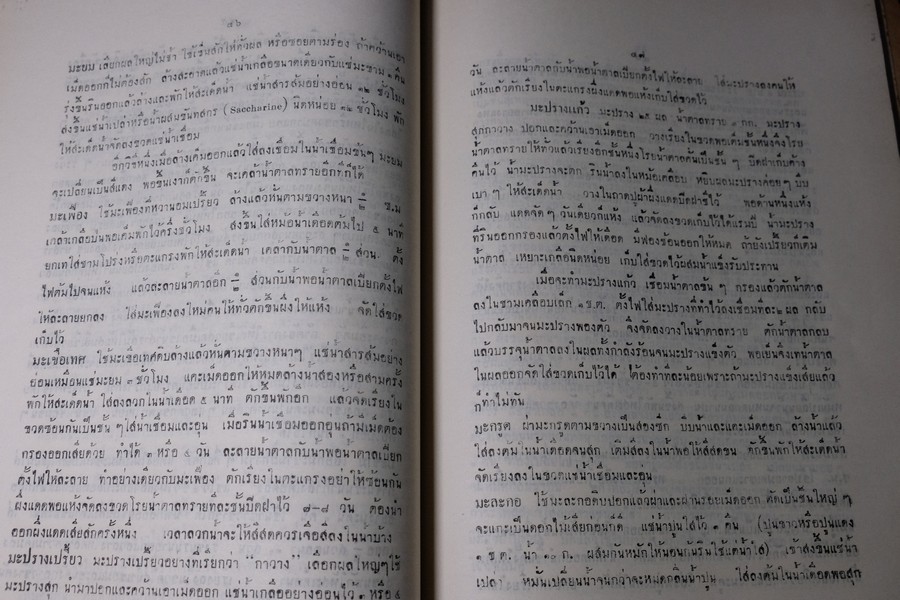 ๘๖
มะยม เลือกผลใหญ่ไม่ช้ำ ใช้เข็มสักให้ทั่วผล หรือซอยตามร่อง ถ้าคว้านเอา
เม็ดออกก็ไม่ต้องสัก ล้างสะอาดแล้วแช่น้ำเกลือขนาดเดียวกับแช่มะขาม ๑ คืน
รุ่งขึ้นรินออกแล้วล้างและพักให้สะเด็ดน้ำ แช่น้ำสารส้มอย่างอ่อน ๑๒ ชั่วโมง พัก
ส่งขึ้นแช่น้ำเปล่าหรือน้ำผสมขันทสกร (Saccharine) นิดหน่อย ๑๒ ชั่วโมง พัก
ให้สะเด็ดน้ำจัดลงขวดแช่น้ำเชื่อม
อีกวิธีหนึ่งเมื่อล้างเค็มออกแล้วใส่ลงเชื่อมในน้ำเชื่อมข้นๆ มะยม
จะเปลี่ยนเป็นสีแดง พอขึ้นเงาก็ตักขึ้น จะเคล้าน้ำตาลทรายอีกทีก็ได้
มะเฟือง ใช้มะเฟืองที่หวานอมเปรี้ยว ล้างแล้วหั่นตามขวางหนา ๑/๒ ซ.ม
เคล้าเกลือป่นพอเค็มพักไว้ครึ่งชั่วโมง ส่งขึ้นใส่หม้อน้ำเดือดต้มไป ๕ นาที
ยกเทใส่ชามโปร่งหรือตะแกรงพักให้สะเด็ดน้ำ เคล้ากับน้ำตาล ส่วน ตั้ง
ไฟต้มไปจนแห้ง แล้วละลายน้ำตาลอีก ส่วนกับน้ำพอน้ำตาลเปียกตั้งไฟ
ให้ละลายยกลง ใส่มะเฟืองลงใหม่คนให้ทั่วตักขึ้นผึ่งให้แห้ง จัดใส่ขวด
เก็บไว้
มะเขือเทศ ใช้มะเขือเทศดิบล้างแล้วหั่นตามขวางหนาๆ แช่น้ำสารส้มอย่าง
อ่อนเหมือนแช่มะยม ๓ ชั่วโมง แคะเม็ดออกให้หมดล้างน้ำสองหรือสามครั้ง
พักให้สะเด็ดน้ำ ใส่ลงลวกในน้ำเดือด ๕ นาที ตักขึ้นพักอีก แล้วจัดเรียงใน
ขวดซ้อนกันเป็นชั้น ๆ ใส่น้ำเชื่อมและอุ่น เมื่อรินน้ำเชื่อมออกอุ่นถ้ามีเม็ดต้อง
กรองออกเสียด้วย ทำได้ ๓ หรือ ๔ วัน ละลายน้ำตาลกับน้ำพอน้ำตาลเปียก
ตั้งไฟให้ละลาย ทำอย่างเดียวกับมะเฟือง ตักเรียงในตะแกรงอย่าให้ซ้อนกัน
ผึ่งแดดพอแห้งจัดลงขวดโรยน้ำตาลทรายทีละชั้นปิดฝาไว้ ๗-๘ วัน ต้องนำ
ออกผึ่งแดดเสียสักครั้งหนึ่ง เวลาลวกน้ำจะให้สีสดควรเจือสีลงในน้ำบ้าง
มะปรางเปรี้ยว มะปรางเปรี้ยวอย่างที่เรียกว่า "กาวาง" เลือกผลใหญ่ๆใช้
มะปรางสุก นำมาปอกและคว้านเอาเม็ดออก แช่น้ำเกลืออย่างอ่อนไว้ ๓ หรือ ๕
๘๗
วัน ละลายน้ำตาลกับน้ำพอน้ำตาลเปียกตั้งไฟให้ละลาย ใส่มะปรางลงคนให้
แห้งแล้วตักเรียงในตะแกรงผึ่งแดดพอแห้งเก็บใส่ขวดไว้
มะปรางแก้ว มะปราง ๒๕ ผล น้ำตาลทราย ๑ กก. มะปราง
สุกกาวาง ปอกและคว้านเอาเม็ดออก วางเรียงในขวดพอเต็มชั้นหนึ่งจึงโรย
น้ำตาลทรายให้ทั่วแล้วเรียงอีกชั้นหนึ่งโรยน้ำตาลคั่นเป็นชั้นๆ ปิดฝาเก็บค้าง
คืนไว้ น้ำมะปรางจะตก รินน้ำลงในหม้อเคลือบ หยิบผลมะปรางค่อยๆ บีบ
เบาๆ ให้สะเด็ดน้ำ วางในถาดปูผ้าผึ่งแดดปิดฝาชีไว้ พอด้านหนึ่งแห้ง
ก็กลับ แดดจัดๆ วันเดียวก็แห้ง แล้วจัดลงขวดเก็บไว้ได้แรมปี น้ำมะปราง
ที่รินออกกรองแล้วตั้งไฟให้เดือด มีฟองช้อนออกให้หมด ถ้ายังเปรี้ยวก็เติม
น้ำตาล เหยาะเกลือนิดหน่อย เก็บใส่ขวดไว้ผสมน้ำแข็งรับประทาน
เมื่อจะทำมะปรางแก้ว เชื่อมน้ำตาลข้น ๆ กรองแล้วตักน้ำตาล
ลงในชามเคลือบเล็ก ๑ ช.ต. ตั้งไฟใส่มะปรางที่ทำไว้ลงเชื่อมทีละ ๒ ผล กลับ
ไปกลับมาจนมะปรางพองตัว จึงจัดลงวางในน้ำตาลทราย ตักน้ำตาลกลบ
แล้วบรรจุน้ำตาลลงในผลทั้งกำลังร้อนจนมะปรางแข็งตัว พอเย็นจึงเทน้ำตาล
ในผลออกจัดใส่ขวดเก็บไว้ได้ ต้องทำทีละน้อยเพราะถ้ามะปรางแข็งเสียแล้ว
ก็ทำไม่ทัน
มะกรูด ผ่ามะกรูดตามขวางเป็นสองซีก บีบน้ำและแคะเม็ดออก ล้างน้ำแล้ว
ใส่ลงต้มในน้ำเดือดจนสุก เติมสีลงในน้ำพอให้สีสดขึ้น ตักขึ้นพักให้สะเด็ดน้ำ
จัดเรียงลงในขวดแช่น้ำเชื่อมและอุ่น
มะละกอ ใช้มะละกอดิบปอกแล้วผ่าและผ่านรอยเม็ดออก ตัดเป็นชิ้นใหญ่ ๆ
จะแกะเป็นดอกไม้เสียก่อนก็ดี แช่น้ำปูนใสไว้ ๑ คืน (ปูนขาวหรือปูนแดง
๑ ช.ต. น้ำ ๑๐ ก. ผสมกันหมักให้นอนก้นรินใช้แต่น้ำใส) เช้าส่งขึ้นแช่น้ำ
เปล่า หมั่นเปลี่ยนน้ำจนกว่าจะหมดกลิ่นน้ำปูน ใส่ลงต้มในน้ำเดือดพอสุก